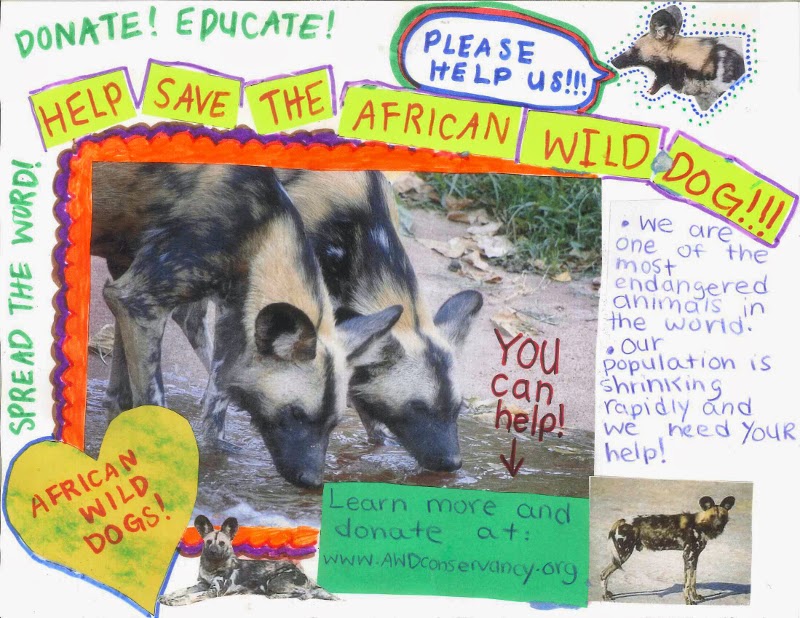 DONATE! EDUCATE!
PLEASE
HELP US!!!
HELP SAVE THE AFRICAN WILD DOG!!!
SPREAD THE WORD!
• we are
one of the
most
endangered
animals in
the world.
• our
population is
shrinking
rapidly and
we need YOUR
help!
YOU
can
help!
AFRICAN
WILD
DOGS!
Learn more and
donate at:
www.AWDconservancy.org